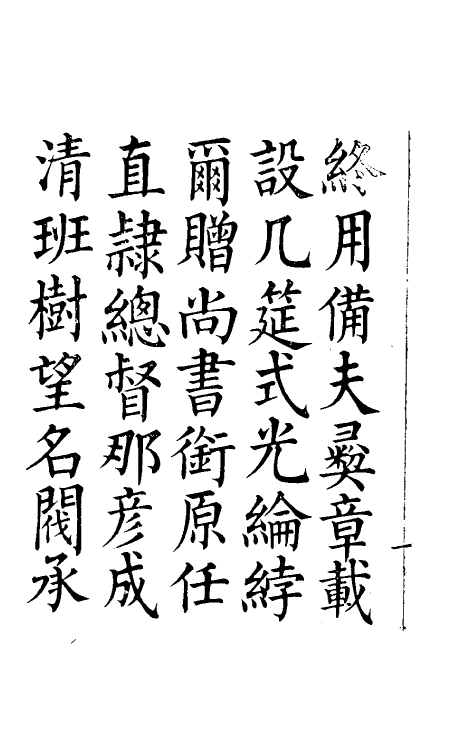 終用備夫彞章載
設几筵式光綸綍
爾贈尚書銜原任
直隷總督那彦成
清班樹望名閥承